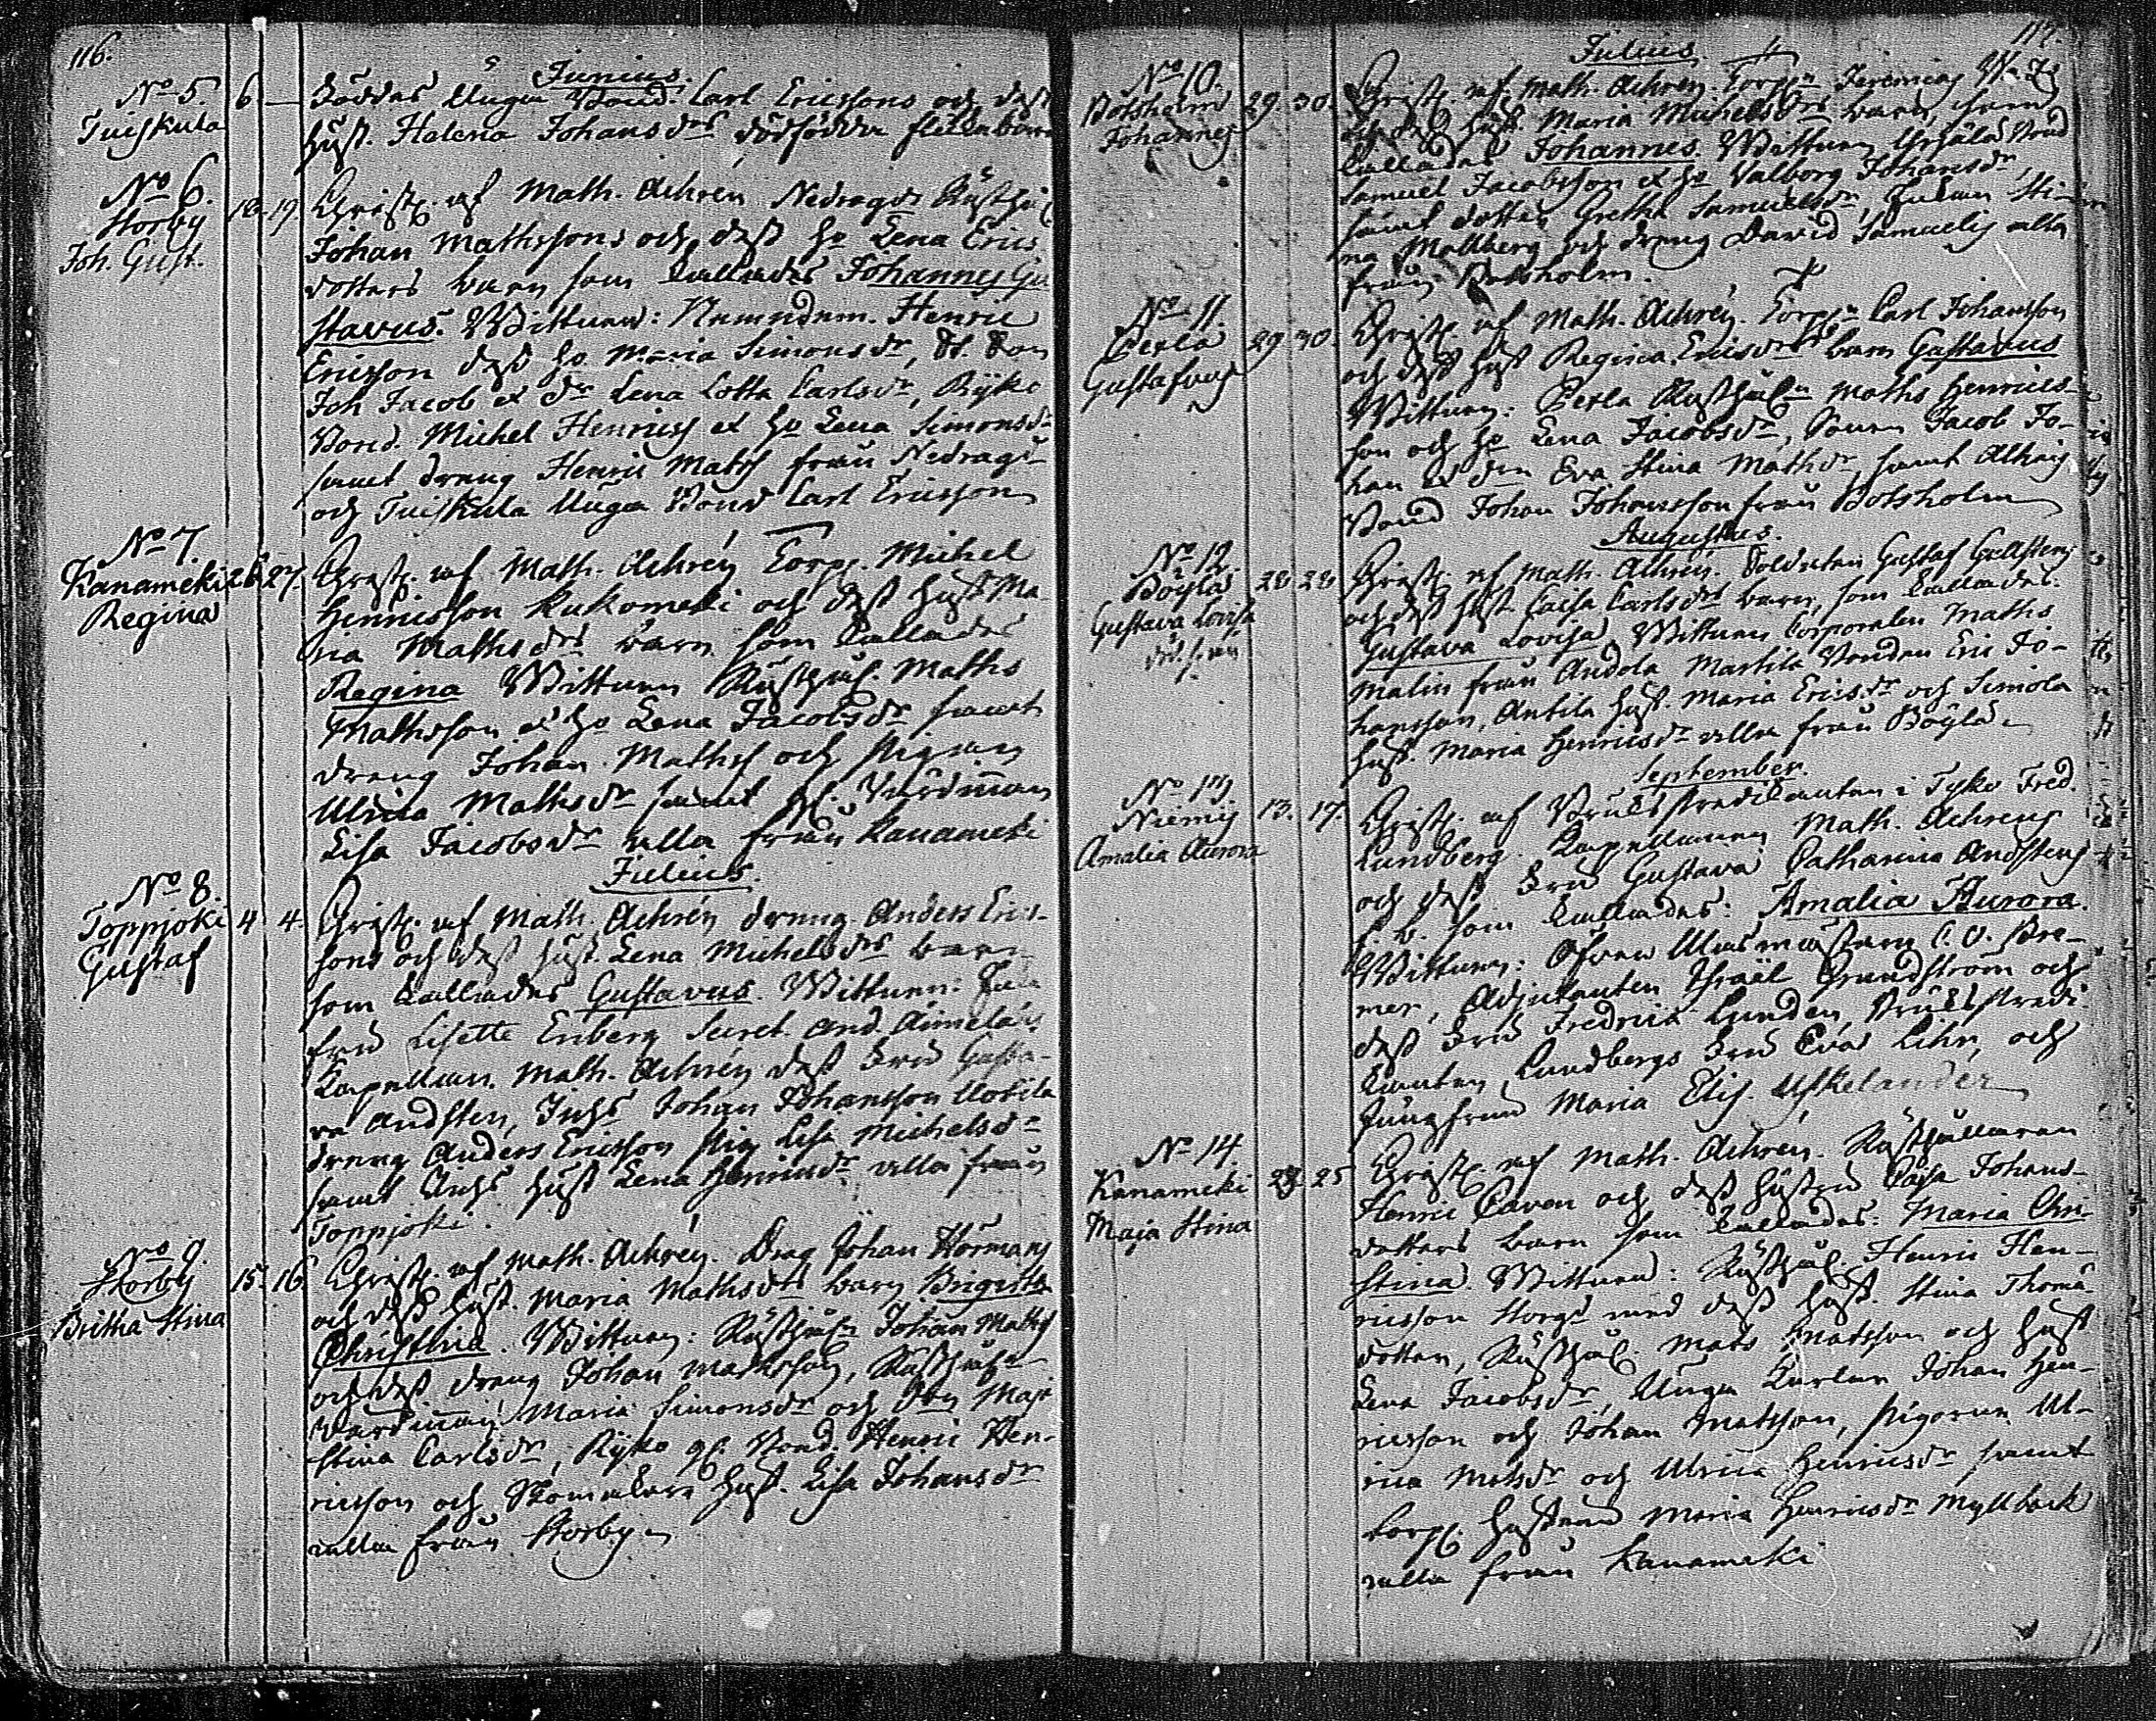 116.
Junius.
No 5. 6. — Föddes Unga Bond. Carl Ericssons och dess
Tuiskula hust. Helena Johansdrs dödfödda flickebarn
No 6. 18. 19. Christ. af Math. Achrén Nedragårds Rusthål.
Storby Johan Mathssons och dess ho Lena Erics
Joh. Gust. dotters barn som kallades Johannes Gu
stavus. Wittnen: Nemndem. Henric
Ericsson dess ho Maria Simonsdr, St. Son
Joh Jacob et dr Lena Lotta Carlsdr, Ryko
Bond. Michel Henrics et ho Lena Simonsdr
samt dreng Henric Mats från Nedrag
och Tuiskula Unga Bond Carl Ericsson
No 7.
Kanameki 26. 27. Christ. af Math. Achrén Torp. Michel
Regina Henricsson Kukomeki och dess hust Ma
ria Mathsdrs barn som kallades
Regina Wittnen Rusthål. Maths
Mathsson et ho Lena Jacobsdr samt
dreng Johan Maths och pigan
Ulrica Mathsdr samt gl. Värdinnan
Lisa Jacobsdr alla från Kanameki
Julius.
No 8.
Toppjoki 4. 4. Christ. af Math. Achrén dreng Anders Erics-
Gustaf sons och dess hust. Lena Michelsdrs barn
som kallades Gustavus. Wittnen:
fru Lisette Enberg Secret. And. Aimelä
Capellan. Math. Achrén dess Fru Gusta-
va Andsten, Johan Johansson Uotila
dreng Anders Ericsson pig Lisa Michelsdr
samt hust Lena Henricsdr alla från
Toppjoki.
No 9.
Storby 15. 16. Christ. af Math. Achrén. Johan Hörmans
Britha Stina och dess hust. Maria Mathsdrs barn Brigitta
Christina. Wittnen: Rusthål Johan Maths
och dess dreng Johan Mathsson, Rusthåls
värdinnan Maria Simonsdr och Maja
Stina Carlsdr, Ryko gl. Bond. Henric Hen-
ricsson och Skomakare hust. Lisa Johansdr
alla från Storby
117.
Julius
No 10.
Botsholm 29. 30. Christ. af Math. Achrén. Torp. Jeremias
Johannes och dess hust. Maria Michelsdrs barn, som
kallades Johannes. Wittnen Yrjälä Bond
Samuel Jacobsson et ho Valborg Johansdr,
samt dotter Gretha Samuelsdr, Sti-
na Mallberg och dreng David Samuels alla
från Botsholm.
No 11.
Perla 29 30. Christ. af Math. Achrén. Torp. Carl Johansson
Gustafvus och dess hust Regina Ericsdrs barn Gustavus
Wittnen: Perla Rusthål Maths Henrics-
son och ho Lena Jacobsdr, Sonen Jacob Jo-
han et drn Eva Stina Mathsdr, samt
Bond Johan Johansson från Botsholm
Augustus.
No 12.
Böylä 28. 28. Christ. af Math. Achrén. Soldaten Gustaf Gullstens
Gustava Lovisa och dess hust. Caisa Carlsdrs barn, som kallades
Gustava Lovisa. Wittnen Corporalen Maths
Malin från Andola Martila Bonden Eric Jo-
hansson, Antila hust. Maria Ericsdr och Simola
hust. Maria Henricsdr alla från Böylä.
September.
No 13
Niemis 13. 17. Christ. af Bruks Predikanten i Tyko Fred.
Amalia Aurora Lundberg. Capellanen Math. Achrens
och dess Fru Gustava Catharina Andstens
f. b. som kallades: Amalia Aurora.
Wittnen: Öfver Masmästaren C. O. Bre-
mer, Adjutanten Israël Grundström och
dess Fru Fredrica Lunden, Bruks Predi
kanten Lundbergs Fru Eva Lihr, och
Jungfrun Maria Elis. Uskelander
No 14
Kanameki 23. 25 Christ. af Math. Achrén. Rusthållaren
Maja Stina Henric Caven och dess hustru Caisa Johans-
dotters barn som kallades: Maria Chri-
stina. Wittnen: Rusthål. Henric Hen-
ricsson Storgd med dess hust. Stina Thoma-
dotter, Rusthål. Mats Matsson och hust
Lena Jacobsdr, Unga Karlar Johan Hen-
ricsson och Johan Matsson, pigorna Ul-
rica Matsdr och Ulrica Henricsdr samt
torp. hustru Maria Henricsdr Myllback
alla från Kanameki